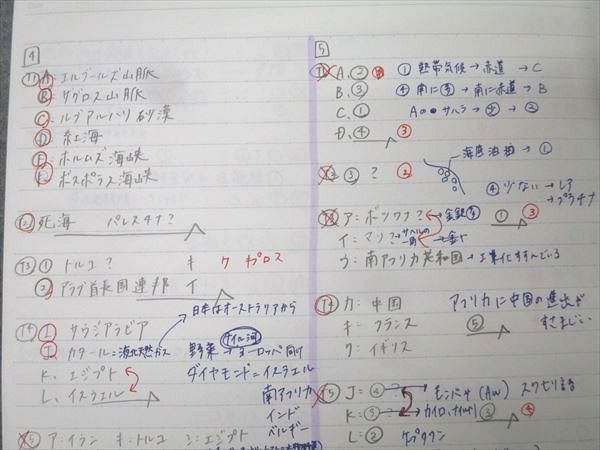 4
A. エルブールズ山脈
B. ザグロス山脈
C. ルブアルハリ砂漠
D. 紅海
ホルムズ海峡
ボスポラス海峡
死海 パレスチナ?
① トルコ? キ ク キプロス
② アラブ首長国連邦 イ
日本はオーストラリアから
サウジアラビア
カタール=液化天然ガス
ナイル河
野菜→ヨーロッパ向け
K. エジプト ダイヤモンド=イスラエル
L. イスラエル
南アフリカ
インド
ベルギー
ア:イラン キ:トルコ シ:エジプト
5
A. ② ① 熱帯気候→赤道→C
B. ③ 南に赤道→B
C. ① Aの サハラ
D. ④ ③
海底油田→①
③? ② ④ 少ない→レア
→プラチナ
ア:ボツワナ? ① ③
イ:マリ?→サヘルの一角
ウ:南アフリカ共和国→工業化すすんでいる
カ:中国 アフリカに中国の進出が
キ:フランス ⑤ すさまじい
ク:イギリス
J= モンバサ (AW) スワヒリ語
K= カイロ ③ ④
L=② ケープタウン